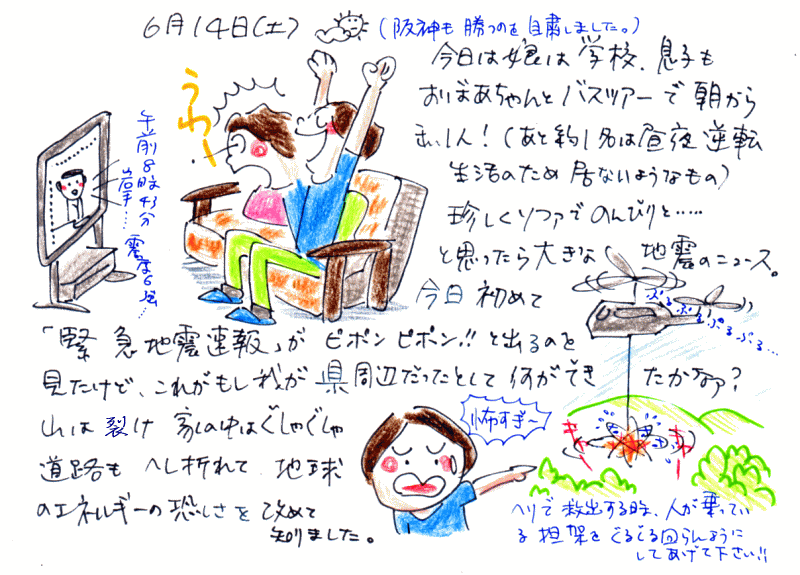 6月14日(土) (阪神も勝つのを自粛しました。)
今日は娘は学校、息子も
おばあちゃんとバスツアーで朝から
私1人!(あと約1名は昼夜逆転
生活のため居ないようなもの)
珍しくソファでのんびりと……
と思ったら大きな地震のニュース。
今日初めて
「緊急地震速報」がピポンピポン!!と出るのを
見たけど、これがもし我が県周辺だったとして何ができたかなァ?
山は裂け家の中はぐしゃぐしゃ
道路もへし折れて、地球
のエネルギーの恐しさを改めて
知りました。
うわー
午前8時43分
岩手…
震度6強…
ぷるぷるぷる…
怖すぎ〜
ヘリで救出する時、人が乗ってい
る担架をぐるぐる回らんように
してあげて下さい!!